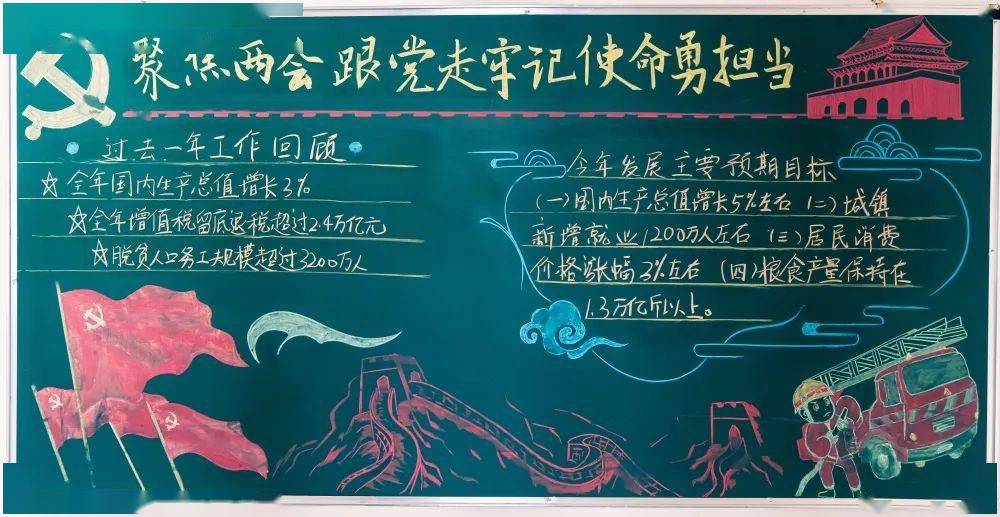 聚焦两会跟党走牢记使命勇担当
过去一年工作回顾
☆全年国内生产总值增长3%
☆全年增值税留底退税超过2.4万亿元
☆脱贫人口务工规模超过3200万人
今年发展主要预期目标
(一)国内生产总值增长5%左右 (二)城镇
新增就业1200万人左右 (三)居民消费
价格涨幅3%左右 (四)粮食产量保持在
1.3万亿斤以上。